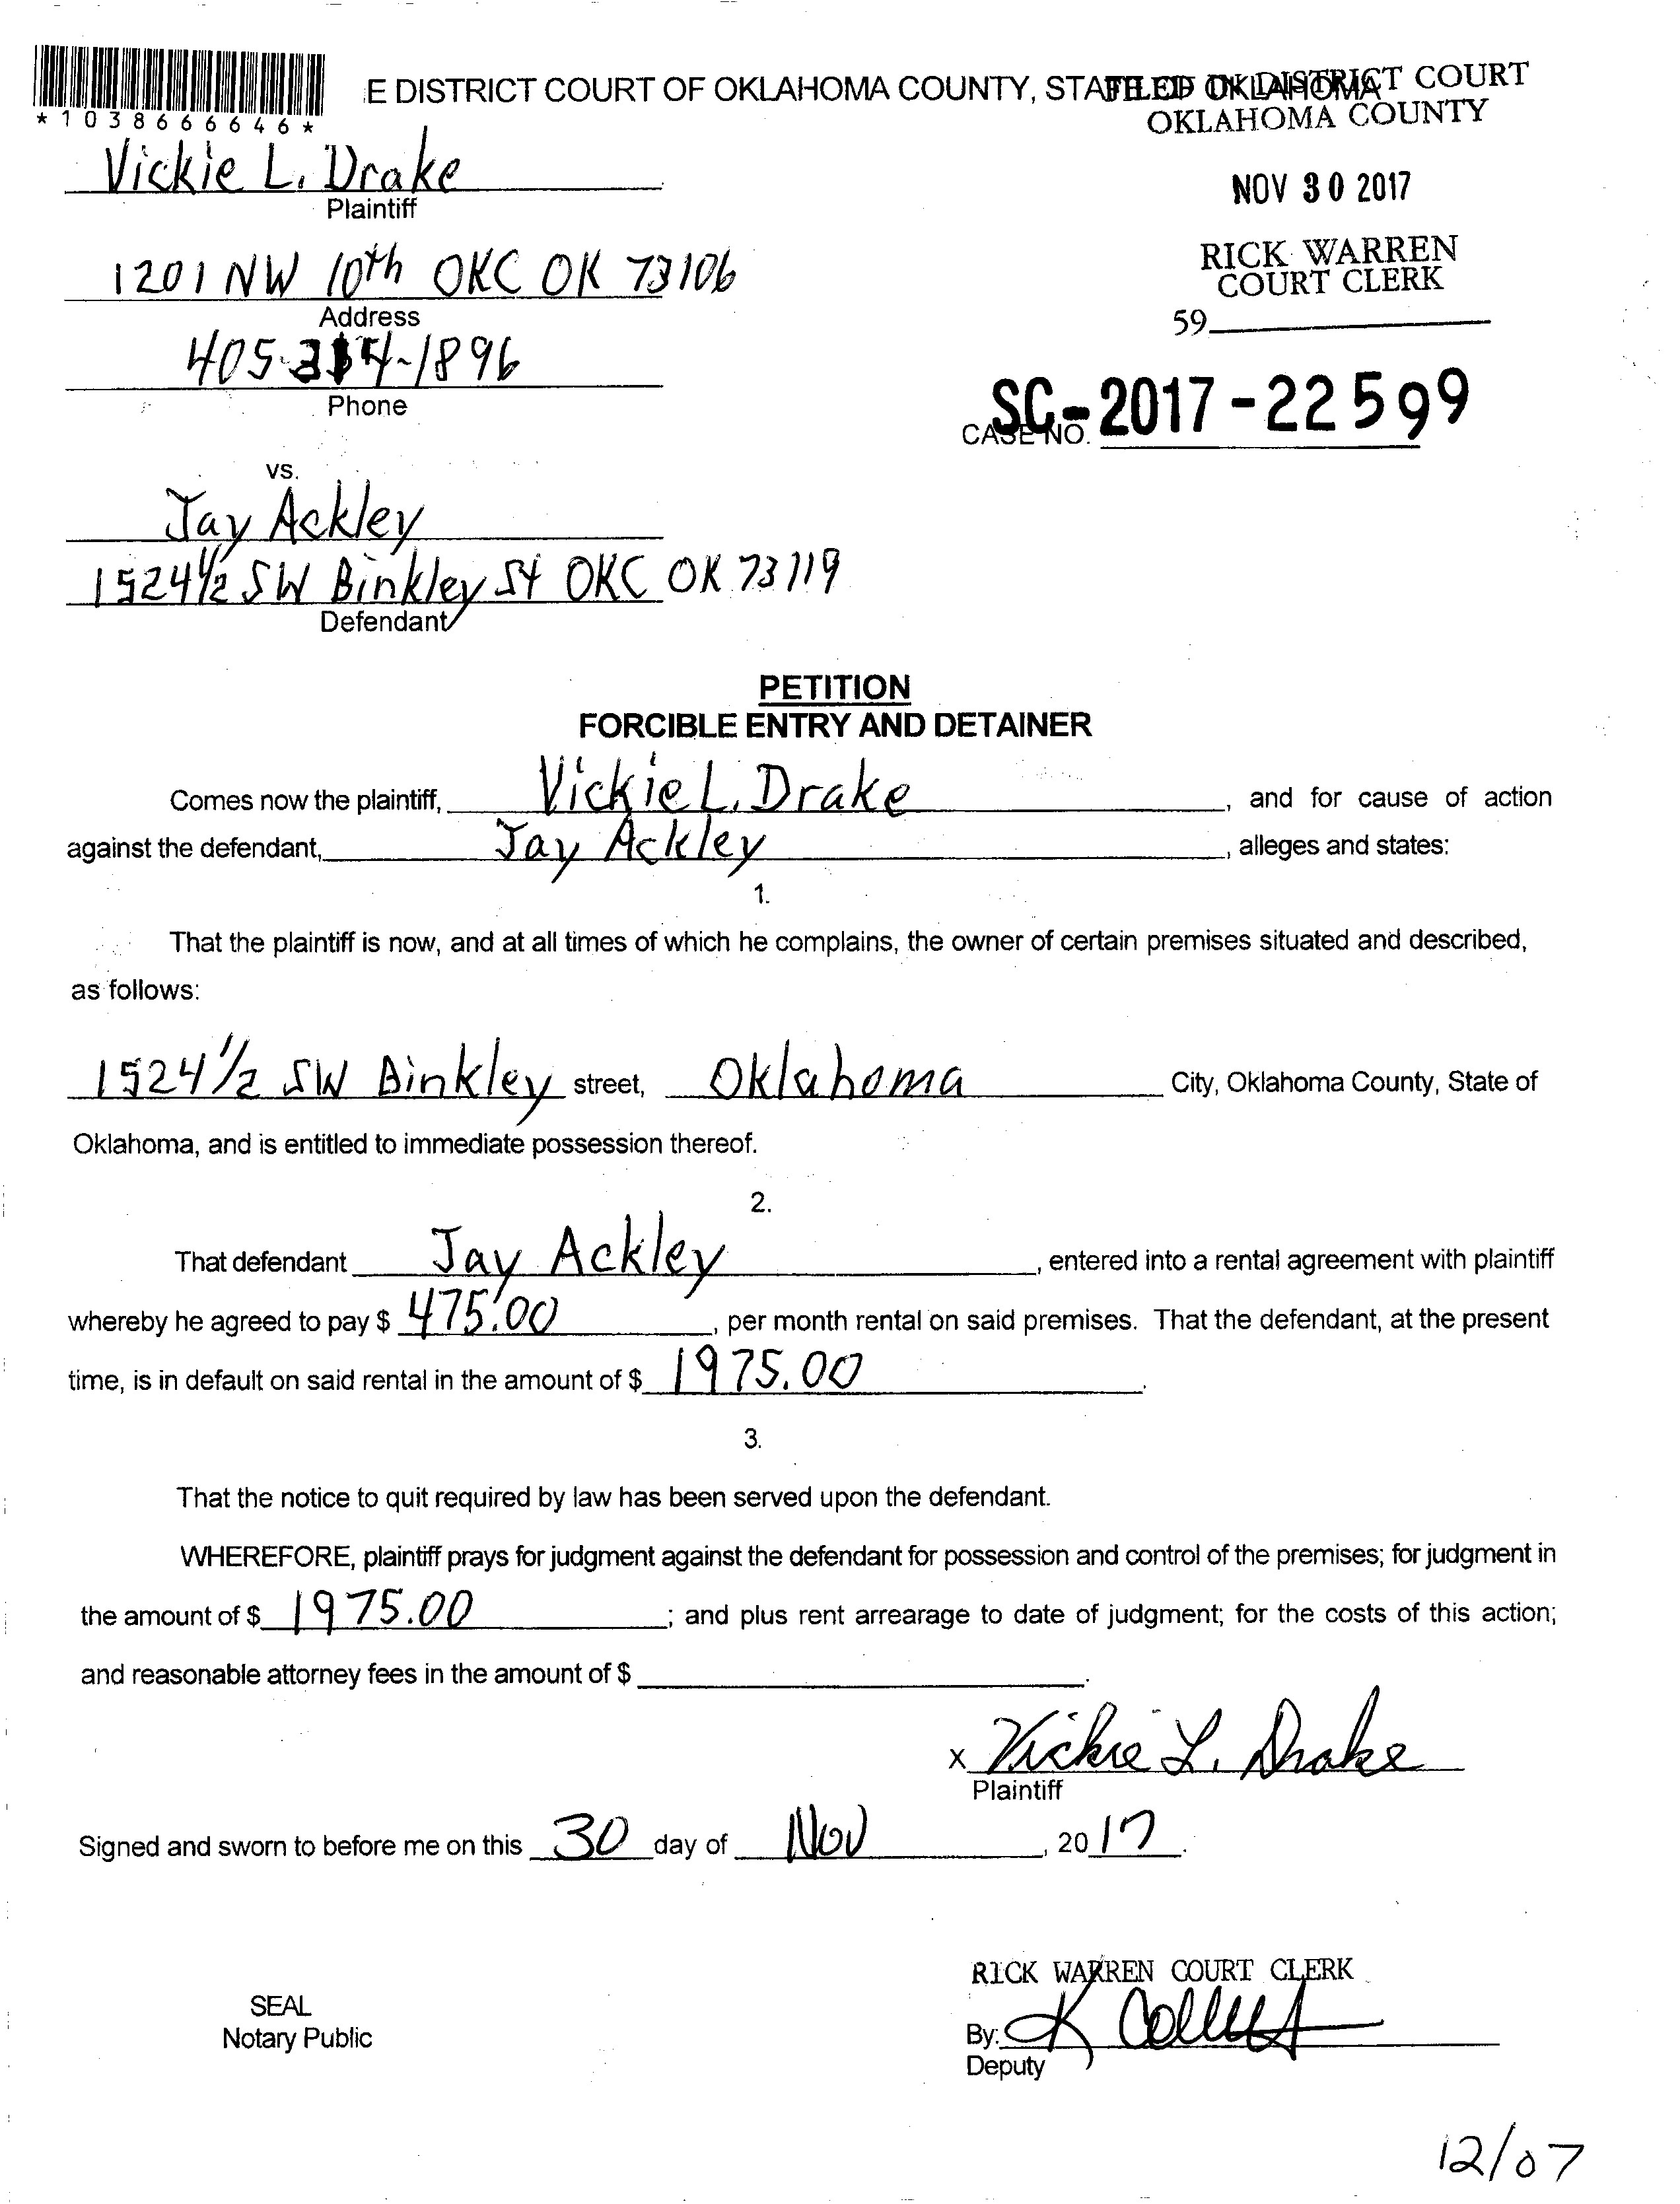 E DISTRICT COURT OF OKLAHOMA COUNTY, STATE OF OKLAHOMA
FILED IN DISTRICT COURT
OKLAHOMA COUNTY
*1038666646*
Vickie L. Drake
Plaintiff
NOV 30 2017
1201 NW 10th OKC OK 73106
Address
RICK WARREN
COURT CLERK
59
405- 4-1896
Phone
CASE NO. SC-2017-22599
vs.
Jay Ackley
1524 1/2 SW Binkley St OKC OK 73119
Defendant
PETITION
FORCIBLE ENTRY AND DETAINER
Comes now the plaintiff, Vickie L. Drake, and for cause of action
against the defendant, Jay Ackley, alleges and states:
1.
That the plaintiff is now, and at all times of which he complains, the owner of certain premises situated and described,
as follows:
1524 1/2 SW Binkley street, Oklahoma City, Oklahoma County, State of
Oklahoma, and is entitled to immediate possession thereof.
2.
That defendant Jay Ackley, entered into a rental agreement with plaintiff
whereby he agreed to pay $ 475.00, per month rental on said premises. That the defendant, at the present
time, is in default on said rental in the amount of $ 1975.00.
3.
That the notice to quit required by law has been served upon the defendant.
WHEREFORE, plaintiff prays for judgment against the defendant for possession and control of the premises; for judgment in
the amount of $ 1975.00; and plus rent arrearage to date of judgment; for the costs of this action;
and reasonable attorney fees in the amount of $ .
x Vickie L. Drake
Plaintiff
Signed and sworn to before me on this 30 day of Nov, 2017.
RICK WARREN COURT CLERK
SEAL
Notary Public
By: K
Deputy
12/07